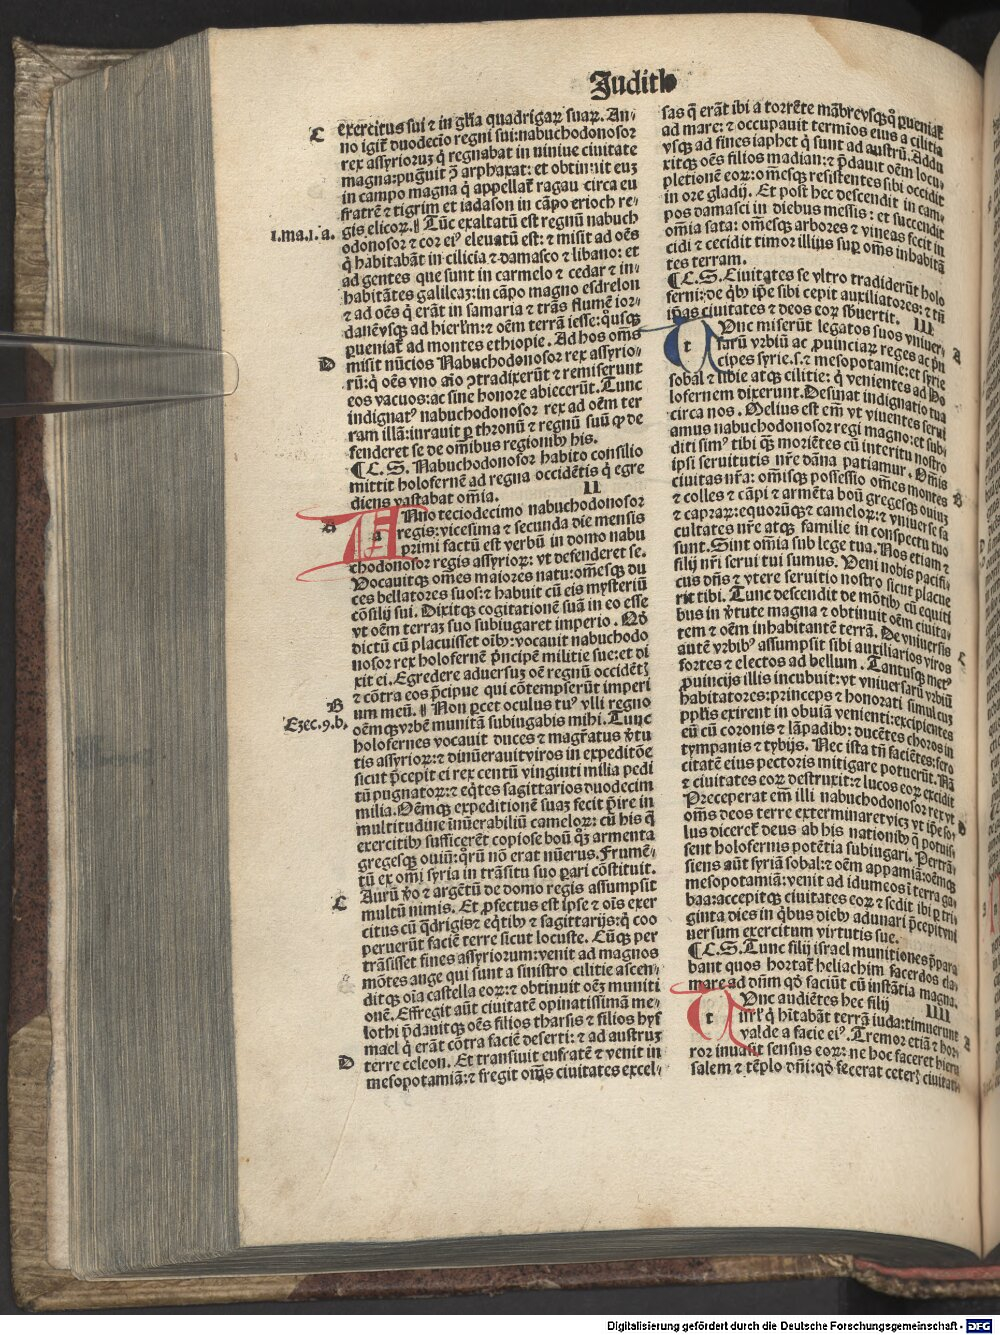 Judith
C exercitus sui ⁊ in gl̃ia quadrigaꝝ suaꝝ. An-
no igit̃ duodecio regni sui: nabuchodonosor
rex assyrioruꝫ q̃ regnabat in niniue ciuitate
magna: pugũit ꝯ̃ arphaxat: et obtinuit euꝫ
in campo magna q̃ appellat̃ ragau circa eu
fratẽ ⁊ tigrim et iadason in cãpo erioch re-
1.ma.1.a. gis elicoꝝ.¶ Tũc exaltatũ est regnũ nabuch
odonosor ⁊ cor eiꝰ eleuatũ est: ⁊ misit ad oẽs
q̃ habitabãt in cilicia ⁊ damasco ⁊ libano: et
ad gentes que sunt in carmelo ⁊ cedar ⁊ in-
habitãtes galileaꝫ: in cãpo magno esdrelon
⁊ ad oẽs q̃ erãt in samaria ⁊ trãs flumẽ ior-
danẽ vsqꝫ ad hierlm̃: ⁊ oẽm terrã iesse: q̊usqꝫ
ꝑueniat̃ ad montes ethiopie. Ad hos om̃s
D misit nũcios Nabuchodonosor rex assyrio-
rũ: q̃ oẽs vno aĩo ꝯtradixerũt ⁊ remiserunt
eos vacuos: ac sine honore abiecerũt. Tunc
indignatꝰ nabuchodonosor rex ad oẽm ter
ram illã: iurauit ꝑ thronũ ⁊ regnũ suũ ꝙ de
fenderet se de om̃ibus regionibꝫ his.
¶ C. S. Nabuchodonosor habito consilio
mittit holofernẽ ad regna occidẽtis q̃ egre
diens vastabat om̃ia. II
A a Nno teciodecimo nabuchodonosor
regis: vicesima ⁊ secunda die mensis
primi factũ est verbũ in domo nabu
chodonosor regis assyrioꝝ: vt defenderet se.
Vocauitqꝫ om̃es maiores natu: om̃esqꝫ du
ces bellatores suos: ⁊ habuit cũ eis mysteriũ
cõsilij sui. Dixitqꝫ cogitationẽ suã in eo esse
vt oẽm terraꝫ suo subiugaret imperio. Qd̃
dictũ cũ placuisset oĩbꝫ: vocauit nabuchodo
nosor rex holofernẽ p̃ncipẽ militie sue: et di
xit ei. Egredere aduersuꝫ oẽ regnũ occidẽtꝫ
⁊ cõtra eos p̃cipue qui cõtempserũt imperi
B um meũ.¶ Non ꝑcet oculus tuꝰ vlli regno
Ezec.9.b. oẽmqꝫ vrbẽ munitã subiugabis mihi. Tunc
holofernes vocauit duces ⁊ magr̃atus v̾tu
tis assyrioꝝ: ⁊ dinũerauit viros in expeditiõe
sicut p̃cepit ei rex centũ vinginti milia pedi
tũ pugnatoꝝ: ⁊ eq̃tes sagittarios duodecim
milia. Oẽmqꝫ expeditionẽ suaꝫ fecit p̃ire in
multitudine inũerabiliũ cameloꝝ: cũ his q̃
exercitibꝫ sufficerẽt copiose boũ q̊qꝫ armenta
gregesqꝫ ouiũ: q̊rũ nõ erat nũerus. Frumẽ-
tũ ex om̃i syria in trãsitu suo ꝑari cõstituit.
C Aurũ v̾o ⁊ argẽtũ de domo regis assumpsit
multũ nimis. Et ꝓfectus est ipse ⁊ oĩs exer
citus cũ q̃drigis ⁊ eq̃tibꝫ ⁊ sagittarijs: q̃ coo
peruerũt faciẽ terre sicut locuste. Cũqꝫ per
trãsisset fines assyriorum: venit ad magnos
mõtes ange qui sunt a sinistro cilitie ascen-
ditqꝫ oĩa castella eoꝝ: ⁊ obtinuit oẽꝫ muniti
onẽ. Effregit aũt ciuitatẽ opinatissimã me-
lothi p̃dauitqꝫ oẽs filios tharsis ⁊ filios hys̃
mael q̃ erãt cõtra faciẽ deserti: ⁊ ad austruꝫ
D terre celeon. Et transiuit eufratẽ ⁊ venit in
mesopotamiã: ⁊ fregit om̃s ciuitates excel-
sas q̃ erãt ibi a torrẽte mãbre vsqꝫ q̊ ꝑueniat̃
ad mare: ⁊ occupauit termĩos eius a cilitia
vsqꝫ ad fines iaphet q̃ sunt ad austrũ. Addu
xitqꝫ oẽs filios madian: ⁊ p̃dauit oẽm locu-
pletionẽ eoꝝ: om̃esqꝫ resistentes sibi occidit
in ore gladij. Et post hec descendit in cam-
pos damasci in diebus messis: et succendit
om̃ia sata: om̃esqꝫ arbores ⁊ vineas fecit in
cidi ⁊ cecidit timor illiꝰ suꝑ om̃s inhabitã
tes terram.
¶ C. S. Ciuitates se vltro tradiderũt holo
ferni: de q̃bꝫ ip̃e sibi cepit auxiliatores: ⁊ tñ
ip̃as ciuitates ⁊ deos eoꝝ sb̾uertit. III
t Vnc miserũt legatos suos vniuer- A
sarũ vrbiũ ac ꝓuinciaꝝ reges ac p̃n
cipes syrie.s. ⁊ mesopotamie: et syrie
sobal ⁊ libie atqꝫ cilitie: q̃ venientes ad ho
lofernem dixerunt. Desinat indignatio tua
circa nos. Melius est em̃ vt viuentes serui
amus nabuchodonosor regi magno: et sub-
diti simꝰ tibi q̃ꝫ moriẽtes cũ interitu nostro
ipsi seruitutis nr̃e dãna patiamur. Om̃is
ciuitas nr̃a: om̃isqꝫ possessio om̃es montes
⁊ colles ⁊ cãpi ⁊ armẽta boũ gregesqꝫ ouiuꝫ B
⁊ capraꝝ: equorũqꝫ ⁊ cameloꝝ: ⁊ vniuerse fa
cultates nr̃e atqꝫ familie in conspectu tuo
sunt. Sint om̃ia sub lege tua. Nos etiam ⁊
filij nr̃i serui tui sumus. Veni nobis pacifi-
cus dñs ⁊ vtere seruitio nostro sicut placue
rit tibi. Tunc descendit de mõtibꝫ cũ equiti
bus in v̾tute magna ⁊ obtinuit oẽm ciuita-
tem ⁊ oẽm inhabitantẽ terrã. De vniuersis
autẽ vrbibꝰ assumpsit sibi auxiliarios viros C
fortes ⁊ electos ad bellum. Tantusqꝫ metꝰ
ꝓuincijs illis incubuit: vt vniuersarũ vrbiũ
habitatores: princeps ⁊ honorati simul cuꝫ
pplis exirent in obuiã venienti: excipientes
eũ cũ coronis ⁊ lãpadibꝫ: ducẽtes choros in
tympanis ⁊ tybijs. Nec ista tñ faciẽtes: fera
citatẽ eius pectoris mitigare potuerũt. Nã
⁊ ciuitates eoꝝ destruxit: ⁊ lucos eoꝝ excidit
Preceperat em̃ illi nabuchodonosor rex vt
om̃s deos terre exterminaret vicꝫ vt ip̃e so- D
lus diceret̃ deus ab his nationibꝫ q̃ potuis-
sent holofernis potẽtia subiugari. Pertrã-
siens aũt syriã sobal: ⁊ oẽm appamiã: oẽmqꝫ
mesopotamiã: venit ad idumeos ĩ terra ga-
baa: accepitqꝫ ciuitates eoꝝ ⁊ sedit ibi ꝑ tri-
ginta dies in q̃bus diebꝫ adunari p̃cepit vni
uersum exercitum virtutis sue.
¶ C. S. Tunc filij israel munitiones p̃para
bant quos hortat̃ heliachim sacerdos cla-
mare ad dñm qd̃ faciũt cũ instãtia magna.
t Vnc audiẽtes hec filij IIII
isrl̃ q̃ hĩtabãt terrã iuda: timuerunt A
valde a facie eiꝰ. Tremor etiã ⁊ hor-
ror inuasit sensus eoꝝ: ne hoc faceret hieru
salem ⁊ tẽplo dñi: qd̃ fecerat ceterꝭ ciuitati-
Digitalisierung gefördert durch die Deutsche Forschungsgemeinschaft - DFG